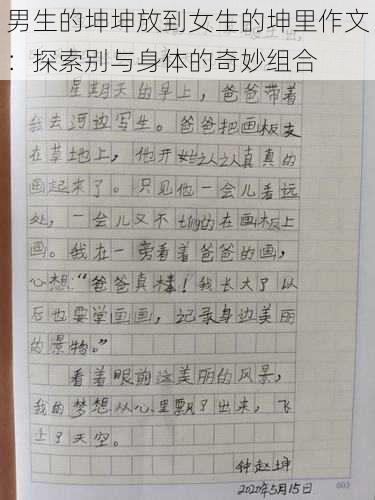 男生的坤坤放到女生的坤里作文
：探索别与身体的奇妙组合
星期天的早上，爸爸带着
我去河边写生。爸爸把画板支
在草地上，他开始认认真真的
画起来了。只见他一会儿看远
处，一会儿又不
的在画板上
画。我在一旁看着爸爸的画，
心想：“爸爸真棒！我长大了以
后也要学画画，记录身边美丽
的景物。”
看着眼前这美丽的风景，
我的梦想从心里飘了出来，飞
上了天空。
钟赵坤
2020年5月15日